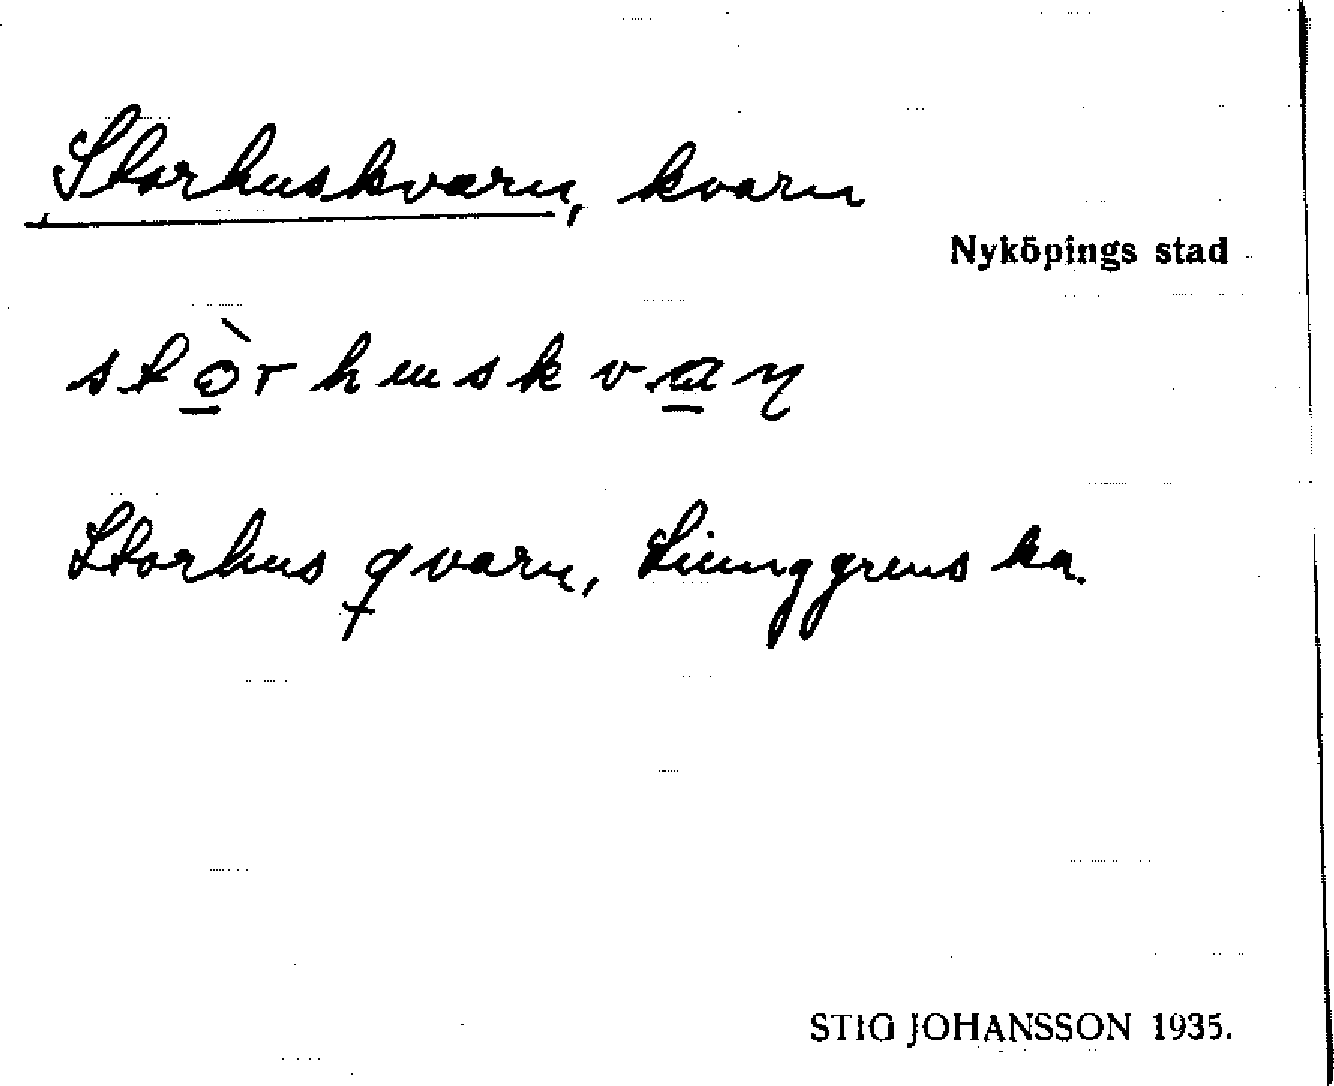 Storhuskvarn, kvarn
Nyköpings stad
stòrhuskvaɳ
Storhus qvarn, Liunggrenska.
STIG JOHANSSON 1935.